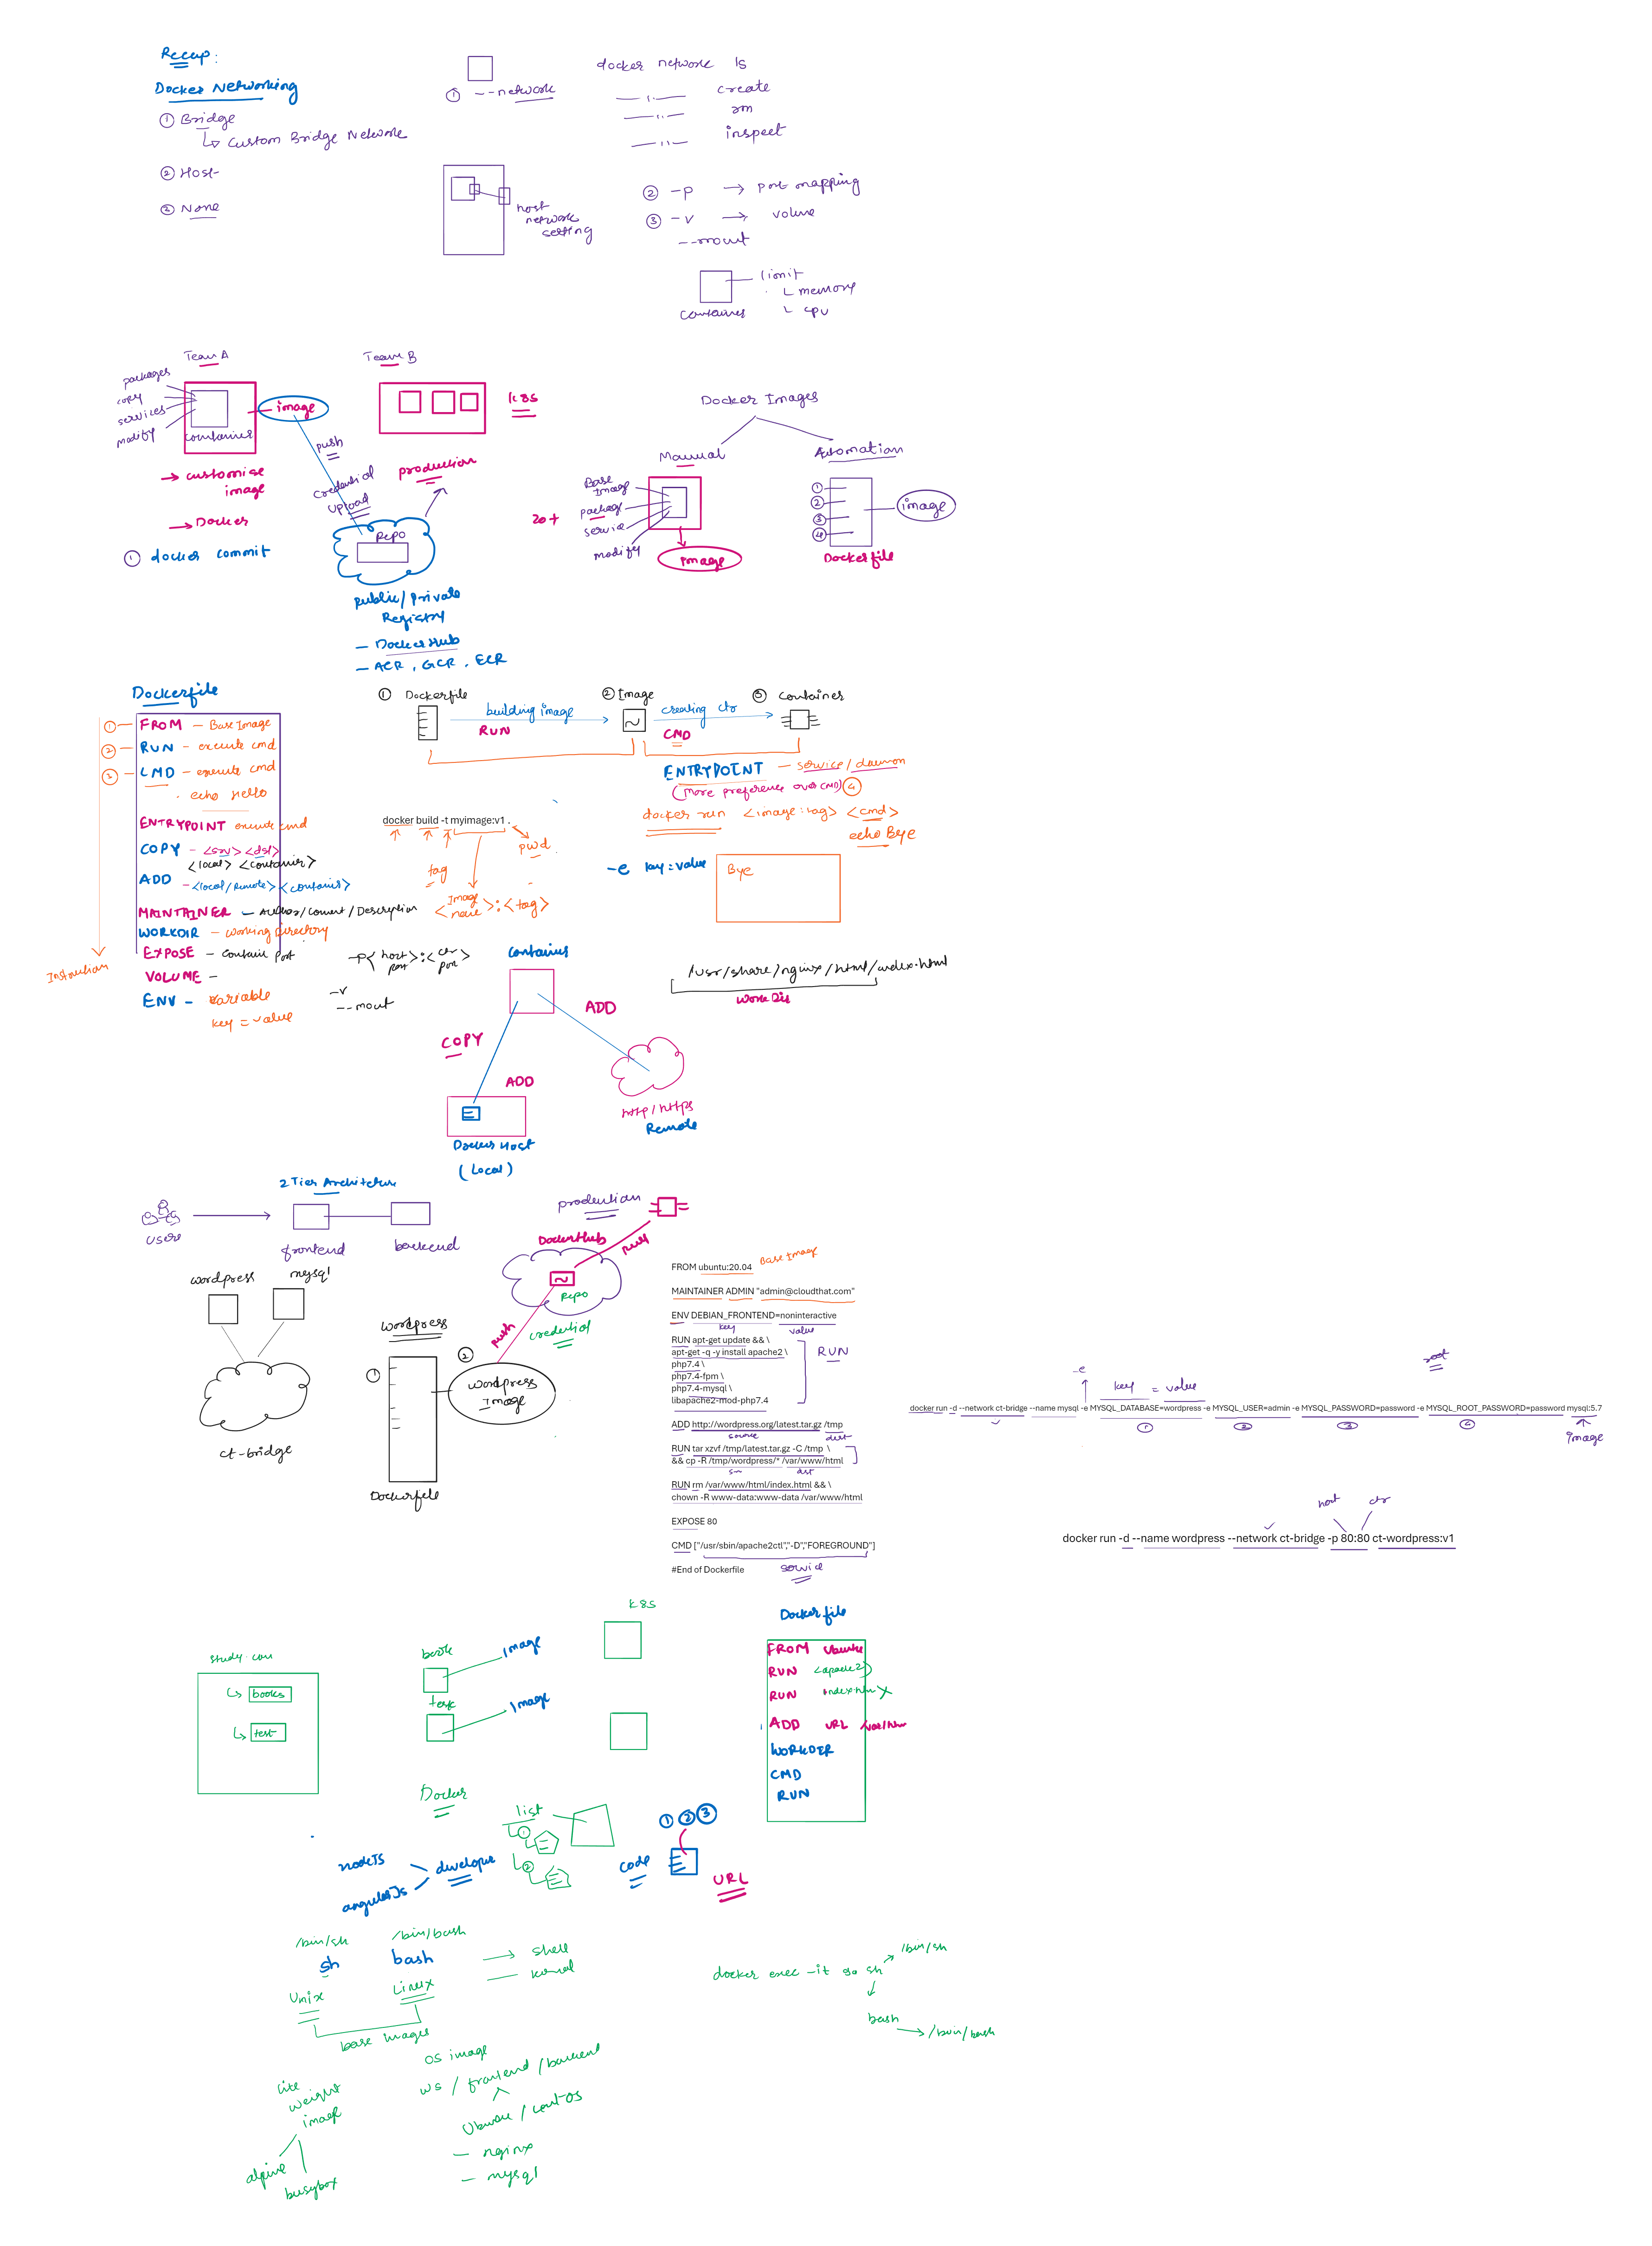 Recap:
Docker Networking
① Bridge
↳ Custom Bridge Network
② Host
③ None
① --network
docker network ls
—〃— create
—〃— rm
—〃— inspect
host network setting
② -p → port mapping
③ -v → volume
--mount
limit
└ memory
└ cpu
Container
Team A
packages
copy
services
modify
container
image
→ customise image
→ Docker
① docker commit
push
credential
upload
Team B
K8s
production
Repo
Public/Private
Registry
- DockerHub
- ACR, GCR, ECR
Docker Images
Manual
20+
Base Image
package
service
modify
image
Automation
①
②
③
④
image
Dockerfile
Dockerfile
① FROM - Base Image
② RUN - execute cmd
③ CMD - execute cmd
echo Hello
ENTRYPOINT execute cmd
COPY - <src> <dst>
<local> <container>
ADD - <local/Remote> <container>
MAINTAINER - Author/Comment/Description
WORKDIR - working directory
EXPOSE - Contain Port
-p <host port>:<ctr port>
VOLUME -
-v
--mount
ENV - variable
key = value
Instruction
① Dockerfile
building image
RUN
② Image
creating ctr
CMD
③ Container
ENTRYPOINT - service/daemon
(more preference over CMD) ④
docker run <image:tag> <cmd>
echo Bye
docker build -t myimage:v1 .
pwd
tag
<Image name>:<tag>
-e key=value
Bye
/usr/share/nginx/html/index.html
Work Dir
Container
ADD
COPY
ADD
http/https
Remote
Docker Host
(Local)
2 Tier Architecture
users
frontend
backend
wordpress
mysql
ct-bridge
wordpress
①
Dockerfile
②
wordpress Image
push
credential
DockerHub
Repo
pull
production
FROM ubuntu:20.04 Base Image
MAINTAINER ADMIN "admin@cloudthat.com"
ENV DEBIAN_FRONTEND=noninteractive
key value
RUN apt-get update && \
apt-get -q -y install apache2 \
php7.4 \
php7.4-fpm \
php7.4-mysql \
libapache2-mod-php7.4
RUN
ADD http://wordpress.org/latest.tar.gz /tmp
source dst
RUN tar xzvf /tmp/latest.tar.gz -C /tmp \
&& cp -R /tmp/wordpress/* /var/www/html
src dst
RUN rm /var/www/html/index.html && \
chown -R www-data:www-data /var/www/html
EXPOSE 80
CMD ["/usr/sbin/apache2ctl","-D","FOREGROUND"]
#End of Dockerfile service
root
-e
key = value
docker run -d --network ct-bridge --name mysql -e MYSQL_DATABASE=wordpress -e MYSQL_USER=admin -e MYSQL_PASSWORD=password -e MYSQL_ROOT_PASSWORD=password mysql:5.7
① ② ③ ④
image
host ctr
docker run -d --name wordpress --network ct-bridge -p 80:80 ct-wordpress:v1
study.com
↳ books
↳ test
book
image
test
image
K8S
Dockerfile
FROM ubuntu
RUN <apache2>
RUN
ADD URL
WORKDIR
CMD
RUN
Docker
list
①
②
nodeJS
angularJs
developer
code
① ② ③
URL
/bin/sh
sh
Unix
/bin/bash
bash
Linux
→ shell
— kernel
base images
docker exec -it sh
/bin/sh
bash
→ /bin/bash
OS image
ws / frontend / backend
Ubuntu / cent os
- nginx
- mysql
lite weight image
alpine
busybox